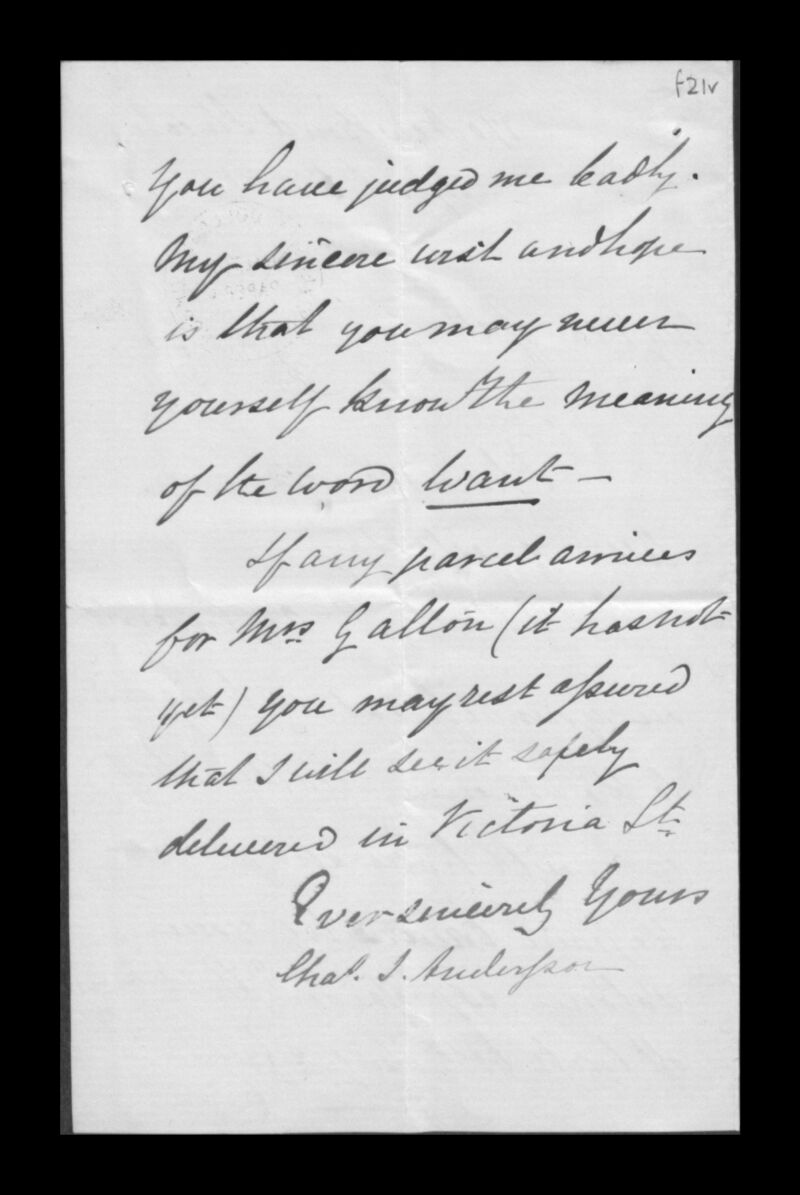 f21v
You have judged me badly.
My sincere wish and hope
is that you may never
yourself know the meaning
of the word want —
If any parcel arrives
for Mrs Galton (it has not
yet) you may rest assured
that I will see it safely
delivered in Victoria St.
Ever sincerely Yours
Chas. J. Andersson